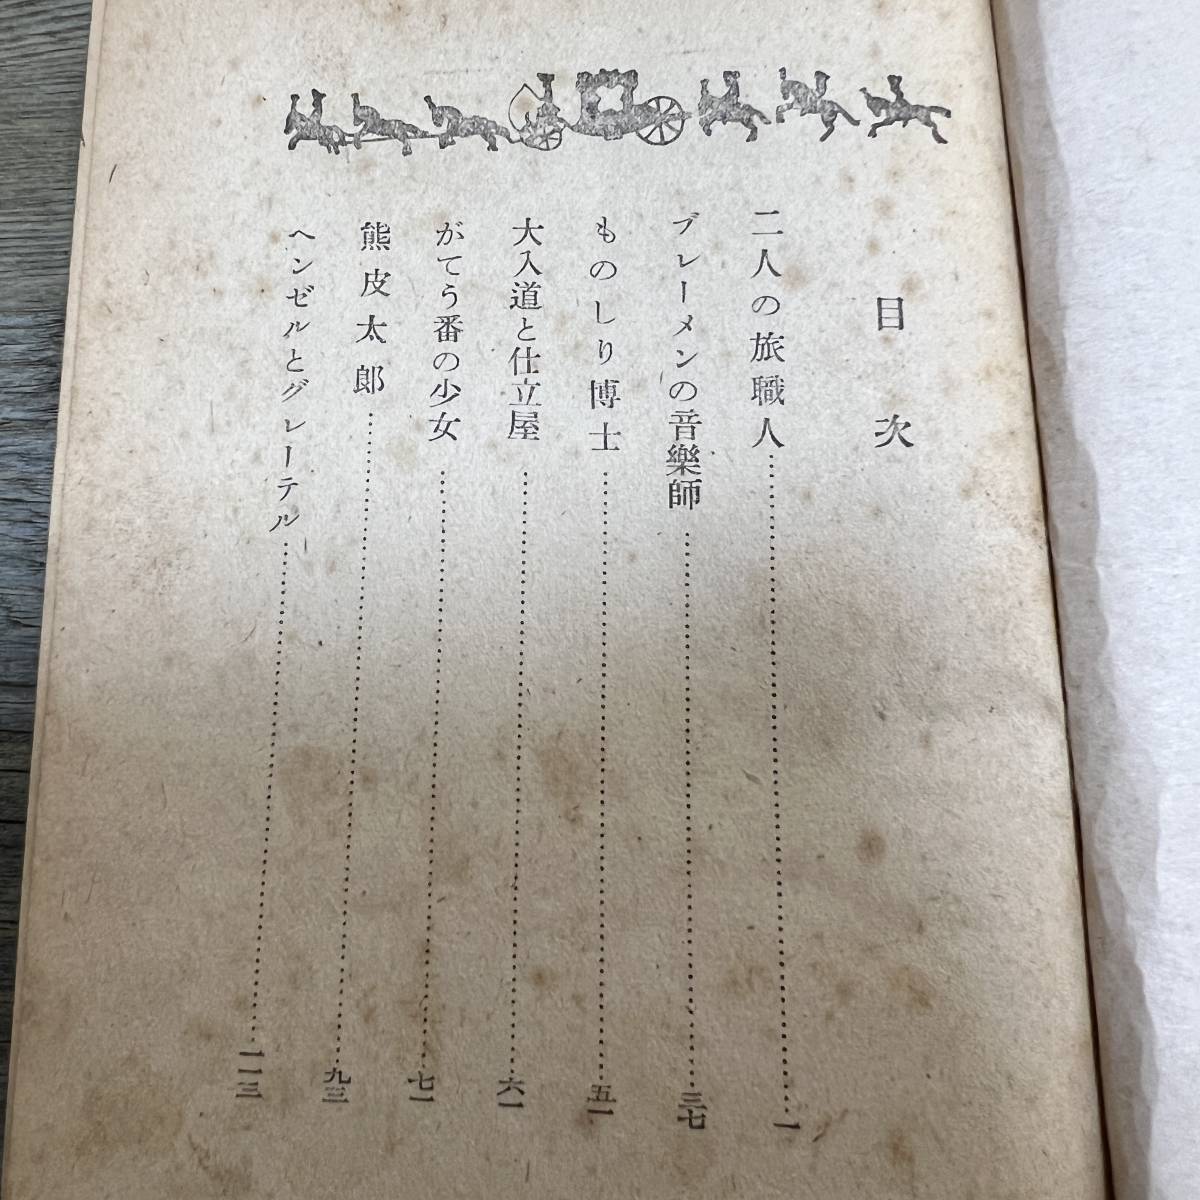 目次
二人の旅職人……一
ブレーメンの音樂師……三七
ものしり博士……五一
大入道と仕立屋……六一
がてう番の少女……七一
熊皮太郎……九三
ヘンゼルとグレーテル……一一三